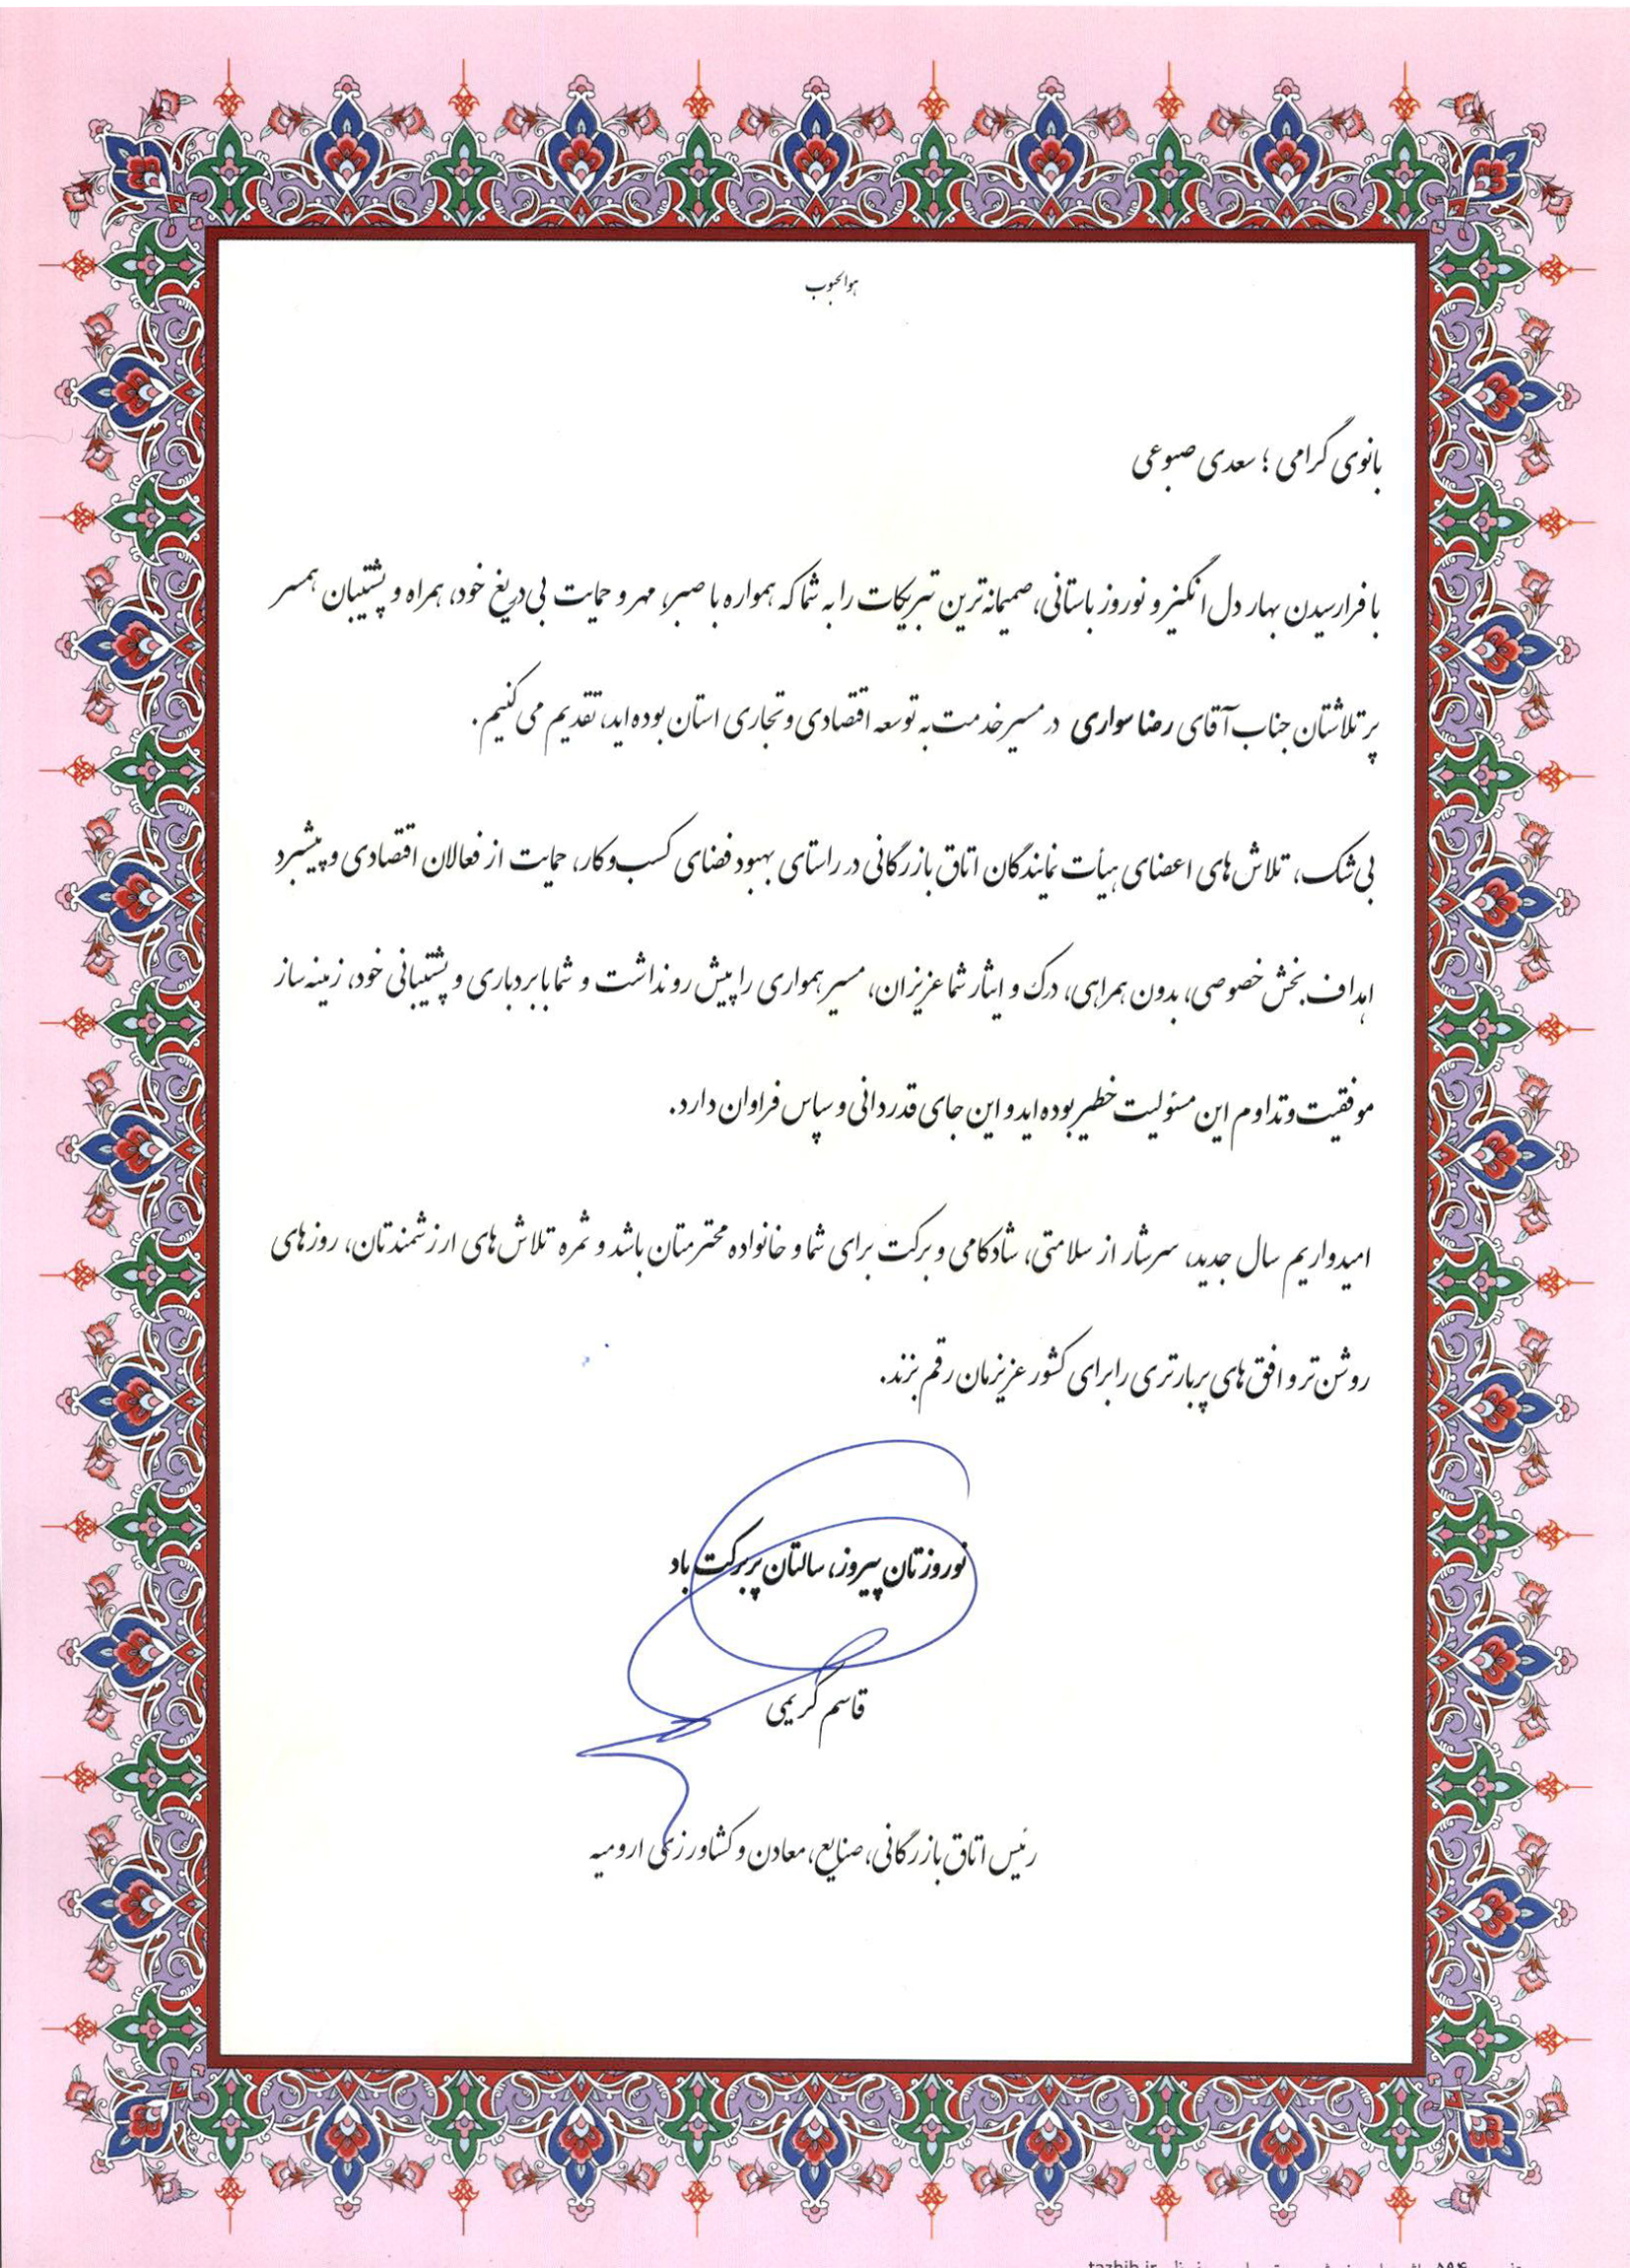 هوالمحبوب
بانوی گرامی ؛ سعدی صبوعی
با فرارسیدن بهار دل انگیز و نوروز باستانی، صمیمانه‌ترین تبریکات را به شما که همواره با صبر، مهر و حمایت بی‌دریغ خود، همراه و پشتیبان همسر
پر تلاشتان جناب آقای رضا سواری در مسیر خدمت به توسعه اقتصادی و تجاری استان بوده اید، تقدیم می کنیم .
بی شک، تلاش های اعضای هیأت نمایندگان اتاق بازرگانی در راستای بهبود فضای کسب و کار، حمایت از فعالان اقتصادی و پیشبرد
اهداف بخش خصوصی، بدون همراهی، درک و ایثار شما عزیزان، مسیر همواری را پیش رو نداشت و شما با بردباری و پشتیبانی خود، زمینه ساز
موفقیت و تداوم این مسئولیت خطیر بوده اید و این جای قدردانی و سپاس فراوان دارد.
امیدواریم سال جدید، سرشار از سلامتی، شادکامی و برکت برای شما و خانواده محترمتان باشد و ثمره تلاش های ارزشمندتان، روزهای
روشن تر و افق های پربارتری را برای کشور عزیزمان رقم بزند.
نوروزتان پیروز، سالتان پربرکت باد
قاسم کریمی
رئیس اتاق بازرگانی، صنایع، معادن و کشاورزی ارومیه